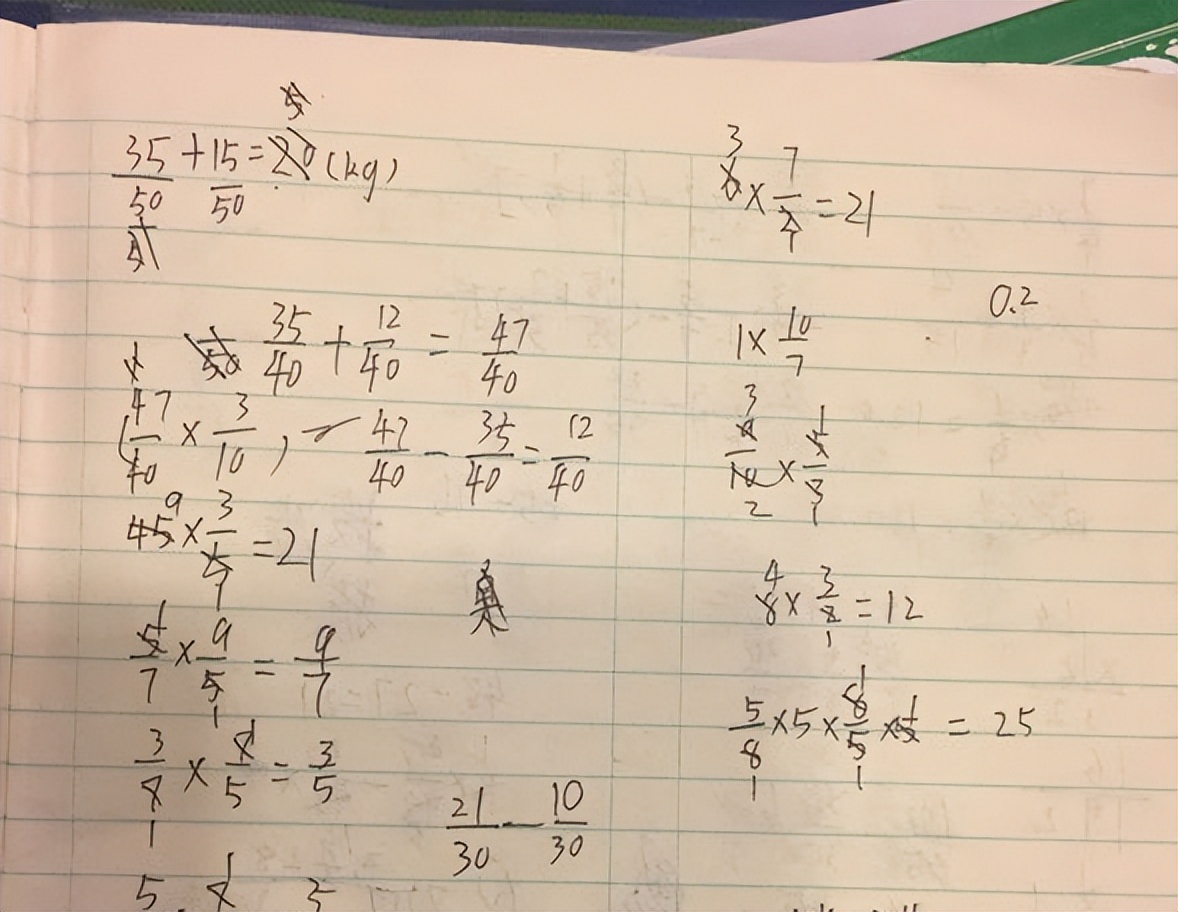 35/50 + 15/50 = 20 (kg)
35/40 + 12/40 = 47/40
47/40 × 3/10, 47/40 - 35/40 = 12/40
45 9 × 3/5 1 = 21
5 1/7 × 9/5 1 = 9/7
3/8 1 × 8 1/5 = 3/5
21/30 - 10/30
5 1 3
3
6 × 7/2 1 = 21
0.2
1 × 10/7
3 1
9/10 × 5/3
2 1
4
8 × 3/2 = 12
1
5/8 × 5 × 8/5 × 5 = 25
1 1